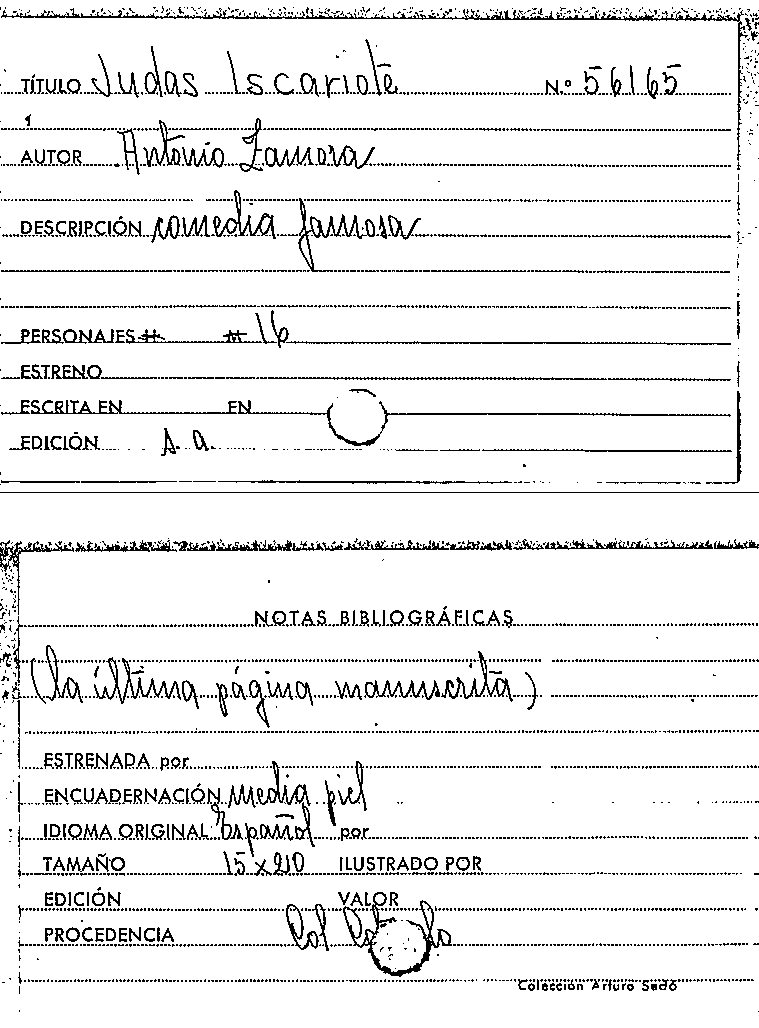 TÍTULO Judas Iscariote N.º 56165
1
AUTOR Antonio Zamora
DESCRIPCIÓN comedia famosa
PERSONAJES H M 16
ESTRENO
ESCRITA EN EN
EDICIÓN s. a.
NOTAS BIBLIOGRÁFICAS
(la última página manuscrita)
ESTRENADA por
ENCUADERNACIÓN media piel
IDIOMA ORIGINAL Español por
TAMAÑO 15 x 210 ILUSTRADO POR
EDICIÓN VALOR
PROCEDENCIA Col
Colección Arturo Sedó